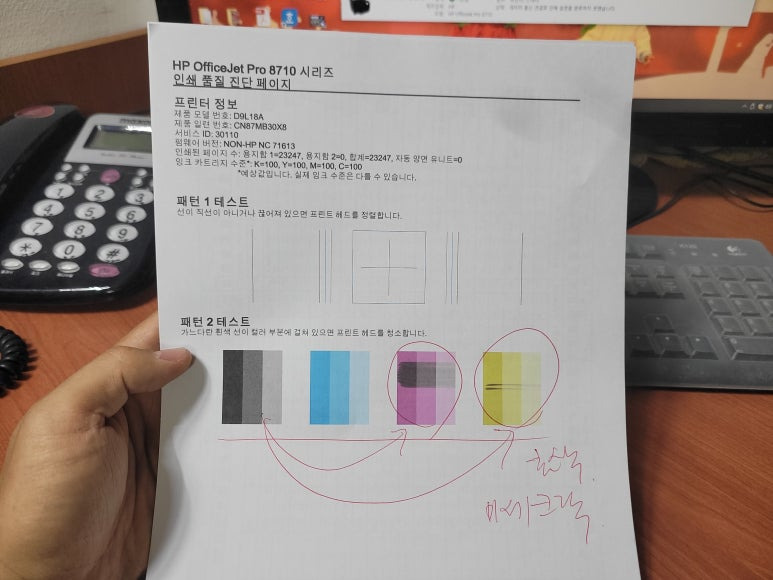 HP OfficeJet Pro 8710 시리즈
인쇄 품질 진단 페이지
프린터 정보
제품 모델 번호: D9L18A
제품 일련 번호: CN87MB30X8
서비스 ID: 30110
펌웨어 버전: NON-HP NC 71613
인쇄된 페이지 수: 용지함 1=23247, 용지함 2=0, 합계=23247, 자동 양면 유니트=0
잉크 카트리지 수준*: K=100, Y=100, M=100, C=100
*예상값입니다. 실제 잉크 수준은 다를 수 있습니다.
패턴 1 테스트
선이 직선이 아니거나 끊어져 있으면 프린트 헤드를 정렬합니다.
패턴 2 테스트
가느다란 흰색 선이 컬러 부분에 걸쳐 있으면 프린트 헤드를 청소합니다.
미세크랙
1
2
3
4
5
6
7
8
9
*
0
#
logitech